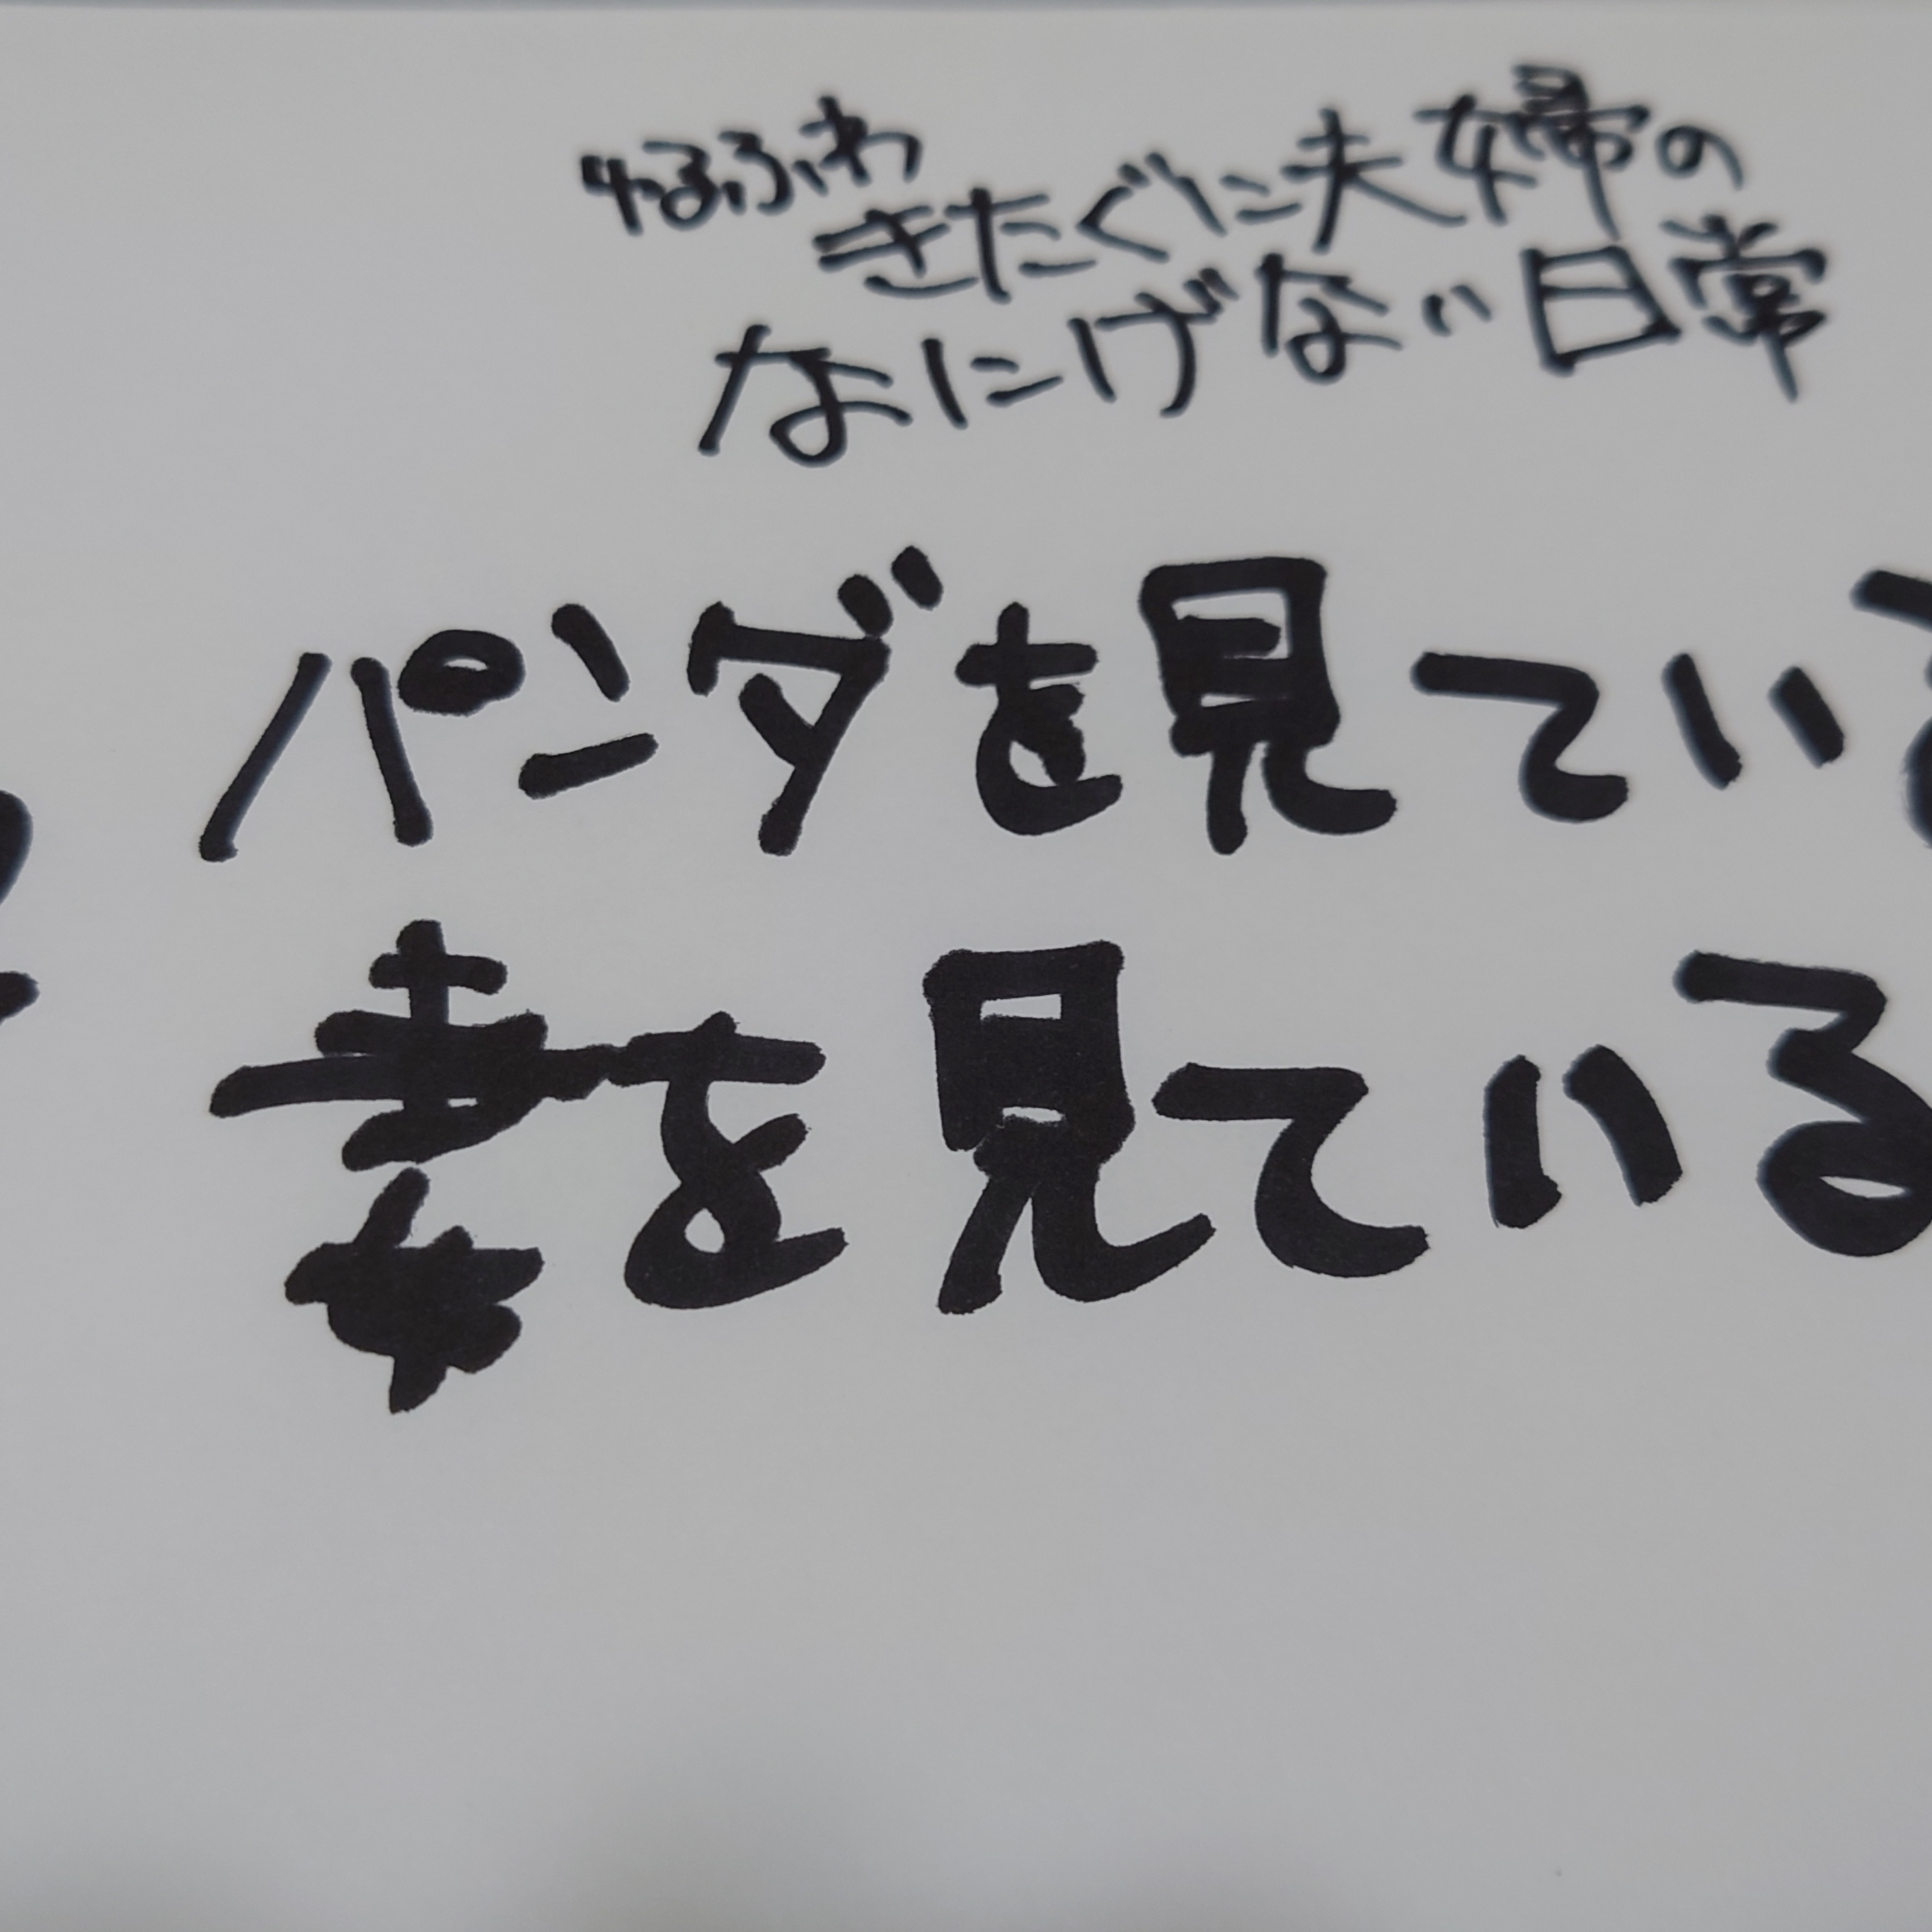 ゆるふわ
きたぐに夫婦の
なにげない日常
パンダを見ている
妻を見ている